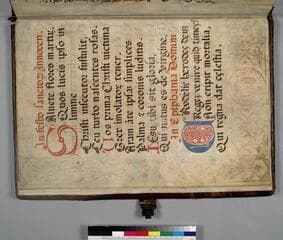 In festo sanctor Innocen.
Salvete flores martir,
Quos lucis ipso in
limine
Christi insecutor sustulit,
Ceu turbo nascentes rosas.
Vos prima Christi victima
Grex imolator tener,
Aram ante ipsam simplices
Palma et coronis luditis.
Iesu tibi sit gloria,
Qui natus es de virgine,
In Epiphania Domini
Crudelis herodes deum
Regem venire quid times?
Non eripit mortalia,
Qui regna dat celestia.